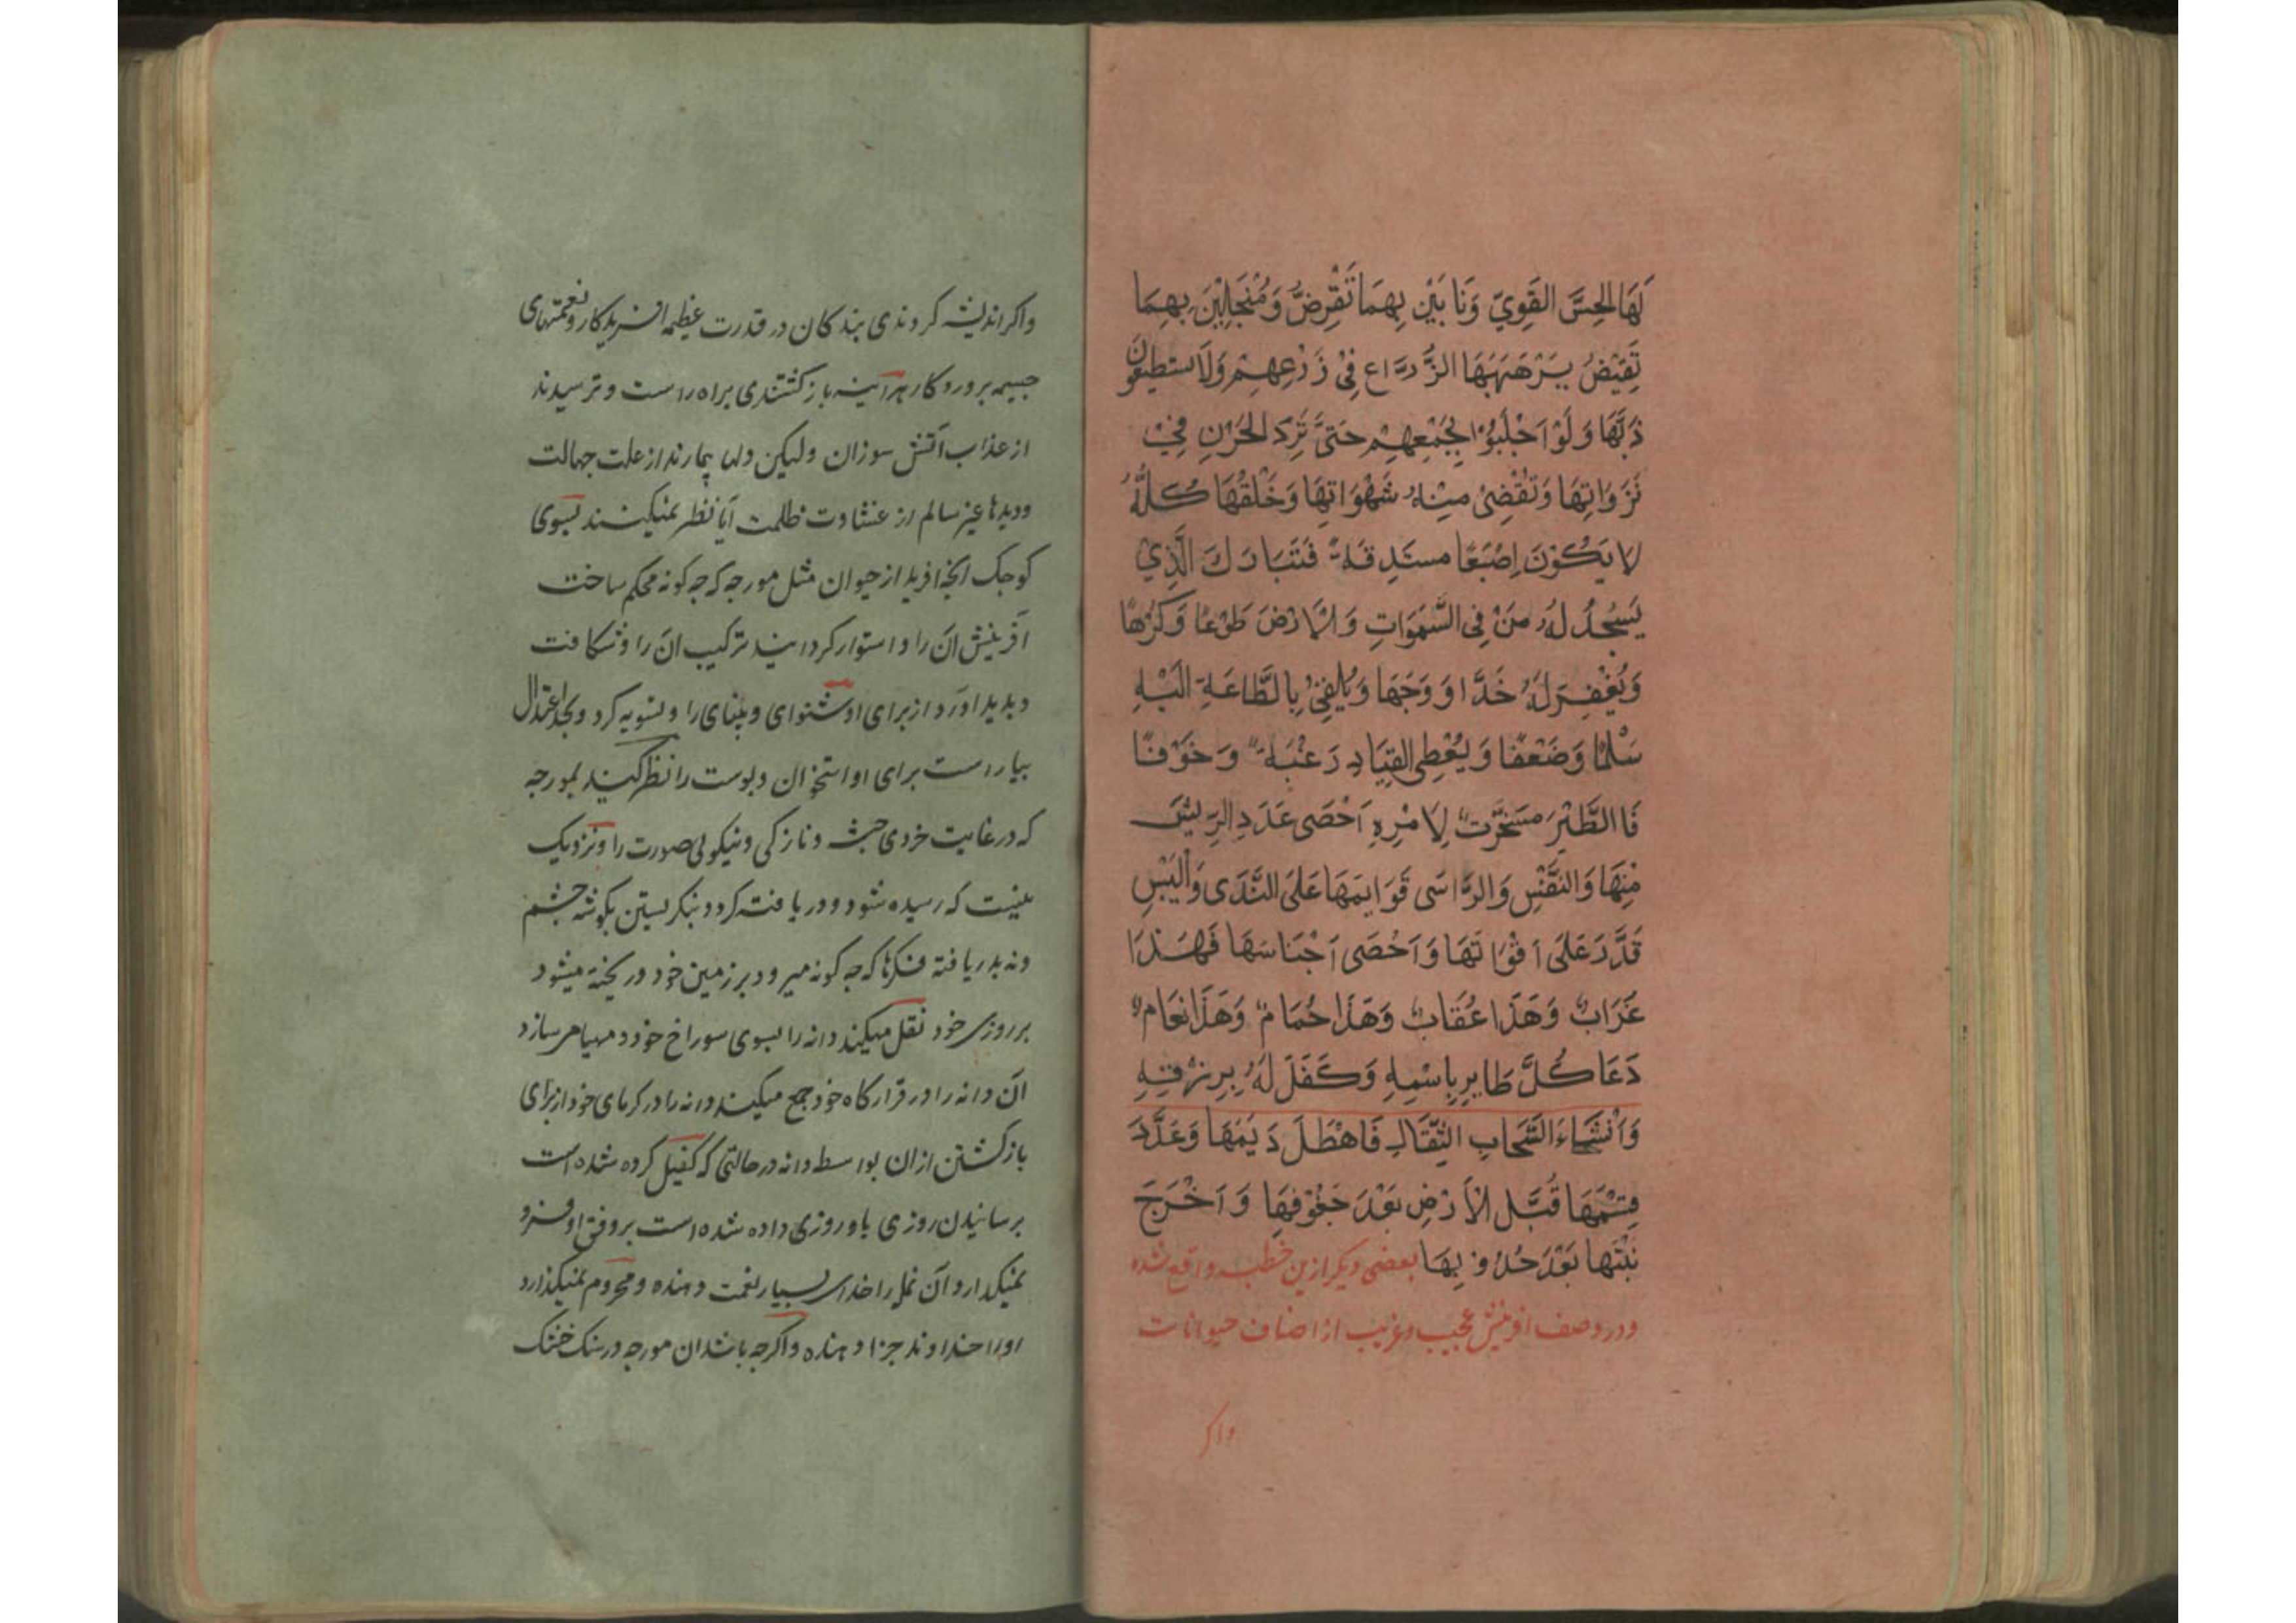 لَهَا الحِسَّ القَوِيّ وَنَا بَيْنِ بِهِمَا تَقْرِضُ وَمُنْجَلَيْنِ بِهِمَا
تَقِبْضُ يَرْهَبَهَا الزُّرَّاع فِيْ زَرْعِهِمْ وَلَا يستطيعُونَ
ذَبَّهَا وَلَوْ اَجْلَبُوْا بِجَمْعِهِمْ حَتيَّ تَرِدَ الحَرْثِ فِيْ
نَزَوَاتِهَا وَتَقْضِىْ مِنْهُ شَهْوَاتِهَا وَخَلْقُهَا كُلُّهُ
لا يَكُوْنَ اِصْبَعًا مستَدِقَةً فَتَبَارَكَ الَّذِيْ
يَسْجُدُ لَهُ مَنْ فِى السَّمَوَاتِ وَالْاَرْضَ طَوْعًا وَكَرْهًا
وَيُعْفِرَ لَهُ خَدًّا وَوَجَهَا وَيُلْقِىْ بِالطَّاعَةِ اِلَيْهِ
سَلْمًا وَضَعْفًا وَيُعْطِى القِيَادِ رَغْبَةً وَخَوْفًا
فَا الطَّيْرَ مسَخَّرَتٌ لِاَمْرِهِ اَحْصَى عَدَدِ الرِّيْشِ
مْنِهَا وَالنَّفْسِ وَارْسَى قَوَايِمَهَا عَلَىَ النَّدَى وَالْيَبْسِ
قَدَّرَ عَلَى اَقْوَاتَهَا وَاَحْصَى اَجْنَاسَهَا فَهَذَا
غُرَابٌ وَهَذَا عُقَابٌ وَهَذَا حُمَامٌ وَهَذَا نَعَامٌ
دَعَا كُلَّ طَايِرِ بِاسْمِهِ وَكَفَلَ لَهُ بِرِزْقِهِ
وَاَنْشَاءَ السَّحَابِ الثِّقَالِ فَاهْطَلَ دَيَمَهَا وَعَدَّدَ
قِسْمَهَا فَبَّل الْاَرْضِ بَعْدَ جَفُوْفِهَا وَاَخْرَجَ
نَبْتَهَا بَعْدَ جُدُوْبِهَا بعضى ديكر ازين خطبه واقع شده
ودر وصف افرينش عجيب وغريب از اصناف حيوانات
واكر
واكر انديشه كردندى بندكان در قدرت عظيمه افريدكار ونعمتهاى
جسيمه پروردكار هر آينه باز كشتندى براه راست وترسيدند
از عذاب آتش سوزان وليكن دلها بيمارند از علت جهالت
وديدها غير سالم از عشاوت ظلمت آيا نظر نميكنند بسوى
كوجك آنچه افريد از حيوان مثل مورچه كه جه كونه محكم ساخت
آفرينش آن را واستوار كردانيد تركيب آن را وشكافت
وپديد آورد از براى او شنواى وبيناى را وتسويه كرد وبحد اعتدال
بياراست براى او استخوان وپوست را نظر كنيد بمورچه
كه در غايت خردى جثه ونازكى ونيكوئى صورت را ونزديك
نيست كه رسيده شود ودريافته كردد بنكريستن بكوشه چشم
ونه بدريافته فكرها كه چه كونه ميرود بر زمين خود وريخته ميشود
بر روزى خود نقل ميكند دانه را بسوى سوراخ خود ومهيا مى سازد
آن دانه را در قراركاه خود جمع ميكند دانه را در كرماى خود از براى
باز كشتن از آن بواسطه دانه در حالتى كه كفيل كرده شده است
برسانيدن روزى باو روزى داده شده است بر وفق او فرو
نميكذارد آن نمل را خداى بسيار نعمت دهنده ومحروم نميكذارد
اورا خداوند جزا دهنده واكرچه باشد ان مورچه در سنك خشك